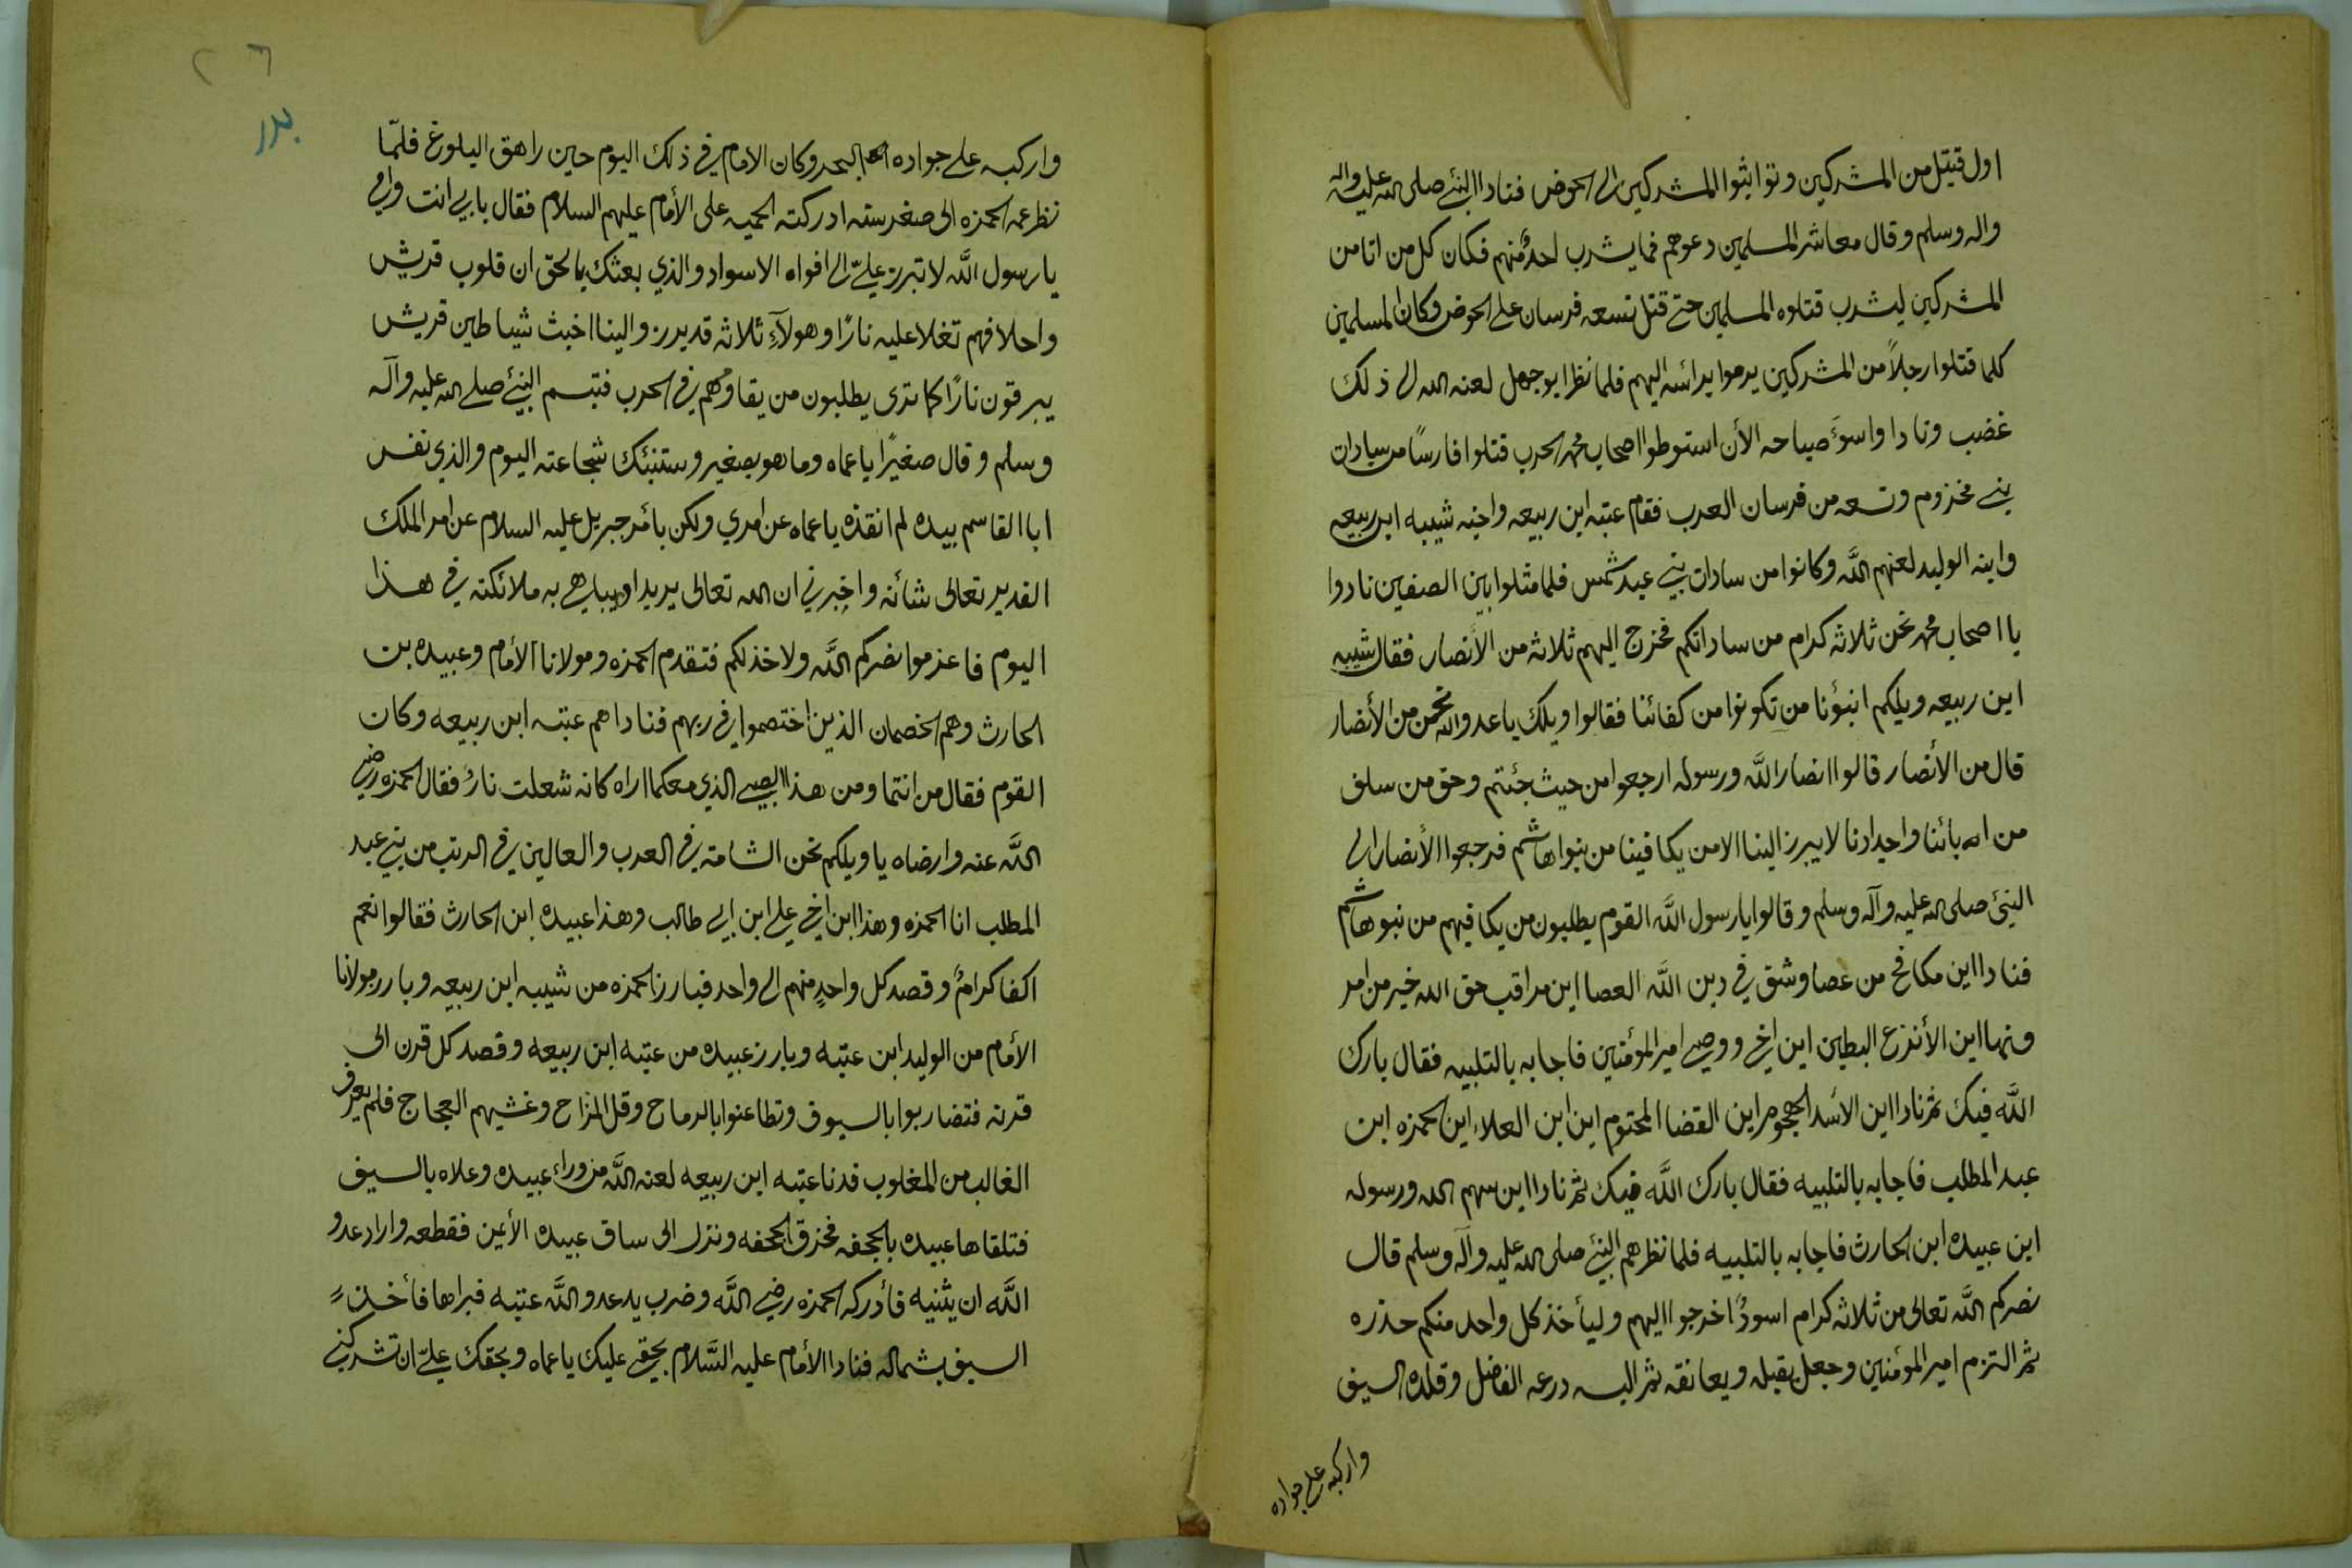 اول قتيل من المشركين وتواثبوا المشركين الى الحوض فنادا النبئ صلى الله عليه واله
واله وسلم وقال معاشر المسلمين دعوهم فما يشرب احدٌ منهم فكان كل من اتا من
المشركين ليشرب قتلوه المسلمين حتى قتل تسعه فرسان على الحوض وكان المسلمين
كلما قتلوا رجلاً من المشركين يرموا براسه اليهم فلما نظر ابو جهل لعنه الله الى ذلك
غضب ونادا واسوءَ صباحه الأن استوطوا اصحاب محمد الحرب قتلوا فارسًا من سادات
بني مخزوم وتسعه من فرسان العرب فقام عتبه ابن ربيعه واخيه شيبه ابن ربيعه
وابنه الوليد لعنهم الله وكانوا من سادات بني عبد شمس فلما مثلوا بين الصفين نادوا
يا اصحاب محمد نحن ثلاثه كرام من ساداتكم فخرج اليهم ثلاثه من الأنصار فقال شيبه
ابن ربيعه ويلكم انبؤنا من تكونوا من كفائنا فقالوا ويلك يا عدو الله نحن من الأنصار
قال من الأنصار قالوا انصار الله ورسوله ارجعوا من حيث جئتم وحق من سلف
من ابائنا واجدادنا لا يبرز الينا الا من يكافينا من بنوا هاشم فرجعوا الأنصار الى
النبئ صلى الله عليه وآله وسلم وقالوا يا رسول الله القوم يطلبون من يكافيهم من بنو هاشم
فنادا اين مكافح من عصا وشق في دين الله العصا اين مراقب حق الله خير من امر
ونها اين الأنزع البطين اين اخي ووصي امير المؤمنين فاجابه بالتلبيه فقال بارك
الله فيك ثم نادا اين الاسد الهجوم اين القضا المحتوم اين ابن العلاء اين الحمزه ابن
عبد المطلب فاجابه بالتلبيه فقال بارك الله فيك ثم نادا اين سهم الله ورسوله
اين عبيده ابن الحارث فاجابه بالتلبيه فلما نظرهم النبئ صلى الله عليه وآله وسلم قال
نصركم الله تعالى من ثلاثه كرام اسودٌ اخرجوا اليهم وليأخذ كل واحد منكم حذره
ثم التزم امير المؤمنين وجعل يقبله ويعانقه ثم البسه درعه الفاضل وقلده السيف
واركبه على جواده
بدر
واركبه على جواده البحر وكان الامام في ذلك اليوم حين راهق البلوغ فلمّا
نظر عمه الحمزه الى صغر سنه ادركته الحميه على الأمام عليهم السلام فقال بابي انت وامي
يا رسول الله لا تبرز عليّ الى افواه الاسواد والذي بعثك بالحق ان قلوب قريش
واحلافهم تغلا عليه نارًا وهولآءِ ثلاثه قد برز والينا اخبث شياطين قريش
يبرقون نارًا كما ترى يطلبون من يقاومهم في الحرب فتبسم النبئ صلى الله عليه وآله
وسلم وقال صغيرًا يا عماه وما هو بصغير وستنبئك شجاعته اليوم والذي نفس
ابا القاسم بيده لم انقذه يا عماه عن امري ولكن بأمر جبريل عليه السلام عن امر الملك
القدير تعالى شأنه واخبرني ان الله تعالى يريد ان يباهي به ملائكته في هذا
اليوم فاعزموا نصركم الله ولا خذلكم فتقدم الحمزه ومولانا الأمام وعبيده بن
الحارث وهم الخصمان الذين اختصموا في ربهم فناداهم عتبه ابن ربيعه وكان
القوم فقال من انتما ومن هذا الصبي الذي معكما اراه كانه شعلت نارٌ فقال الحمزه رضي
الله عنه وارضاه يا ويلكم نحن الشامته في العرب والعالين في الرتب من بني عبد
المطلب انا الحمزه وهذا ابن اخي علي ابن ابي طالب وهذا عبيده ابن الحارث فقالوا نعم
اكفا كرامٌ وقصد كل واحدٍ منهم الى واحد فبارز الحمزه من شيبه ابن ربيعه وبارز مولانا
الأمام من الوليد ابن عتبه وبارز عبيده من عتبه ابن ربيعه وقصد كل قرن الى
قرنه فتضاربوا بالسيوف وتطاعنوا بالرماح وقل المزاح وغشيهم العجاج فلم يعرف
الغالب من المغلوب فدنا عتبه ابن ربيعه لعنه الله من وراء عبيده وعلاه بالسيف
فتلقاها عبيده بالجحفه فخرق الجحفه ونزل الى ساق عبيده الأيمن فقطعه واراد عدو
الله ان يثنيه فأدركه الحمزه رضي الله وضرب يد عدو الله عتبه فبراها فأخذ
السيف بشماله فنادا الأمام عليه السَّلام بحقي عليك يا عماه وبحقك عليّ ان تشركني